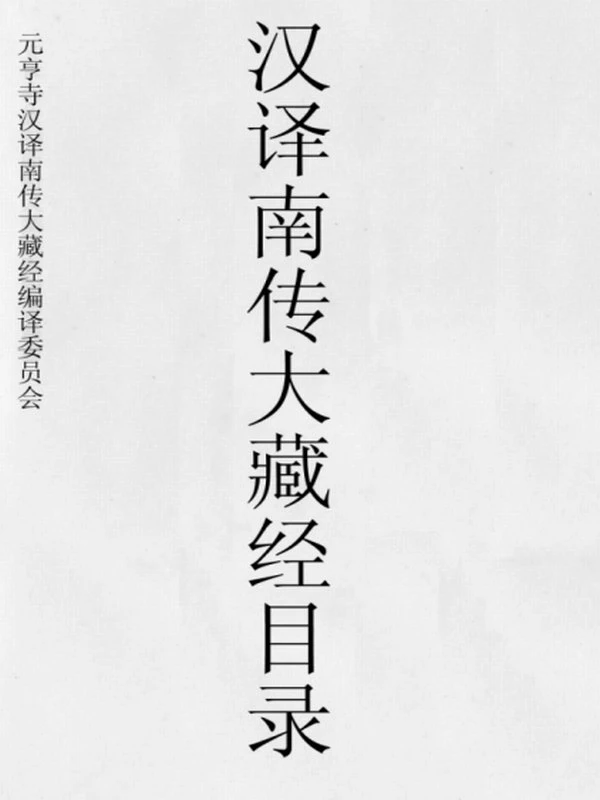 汉译南传大藏经目录
元亨寺汉译南传大藏经编译委员会